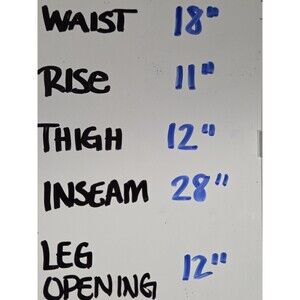 WAIST 18"
RISE 11"
THIGH 12"
INSEAM 28"
LEG
OPENING 12"